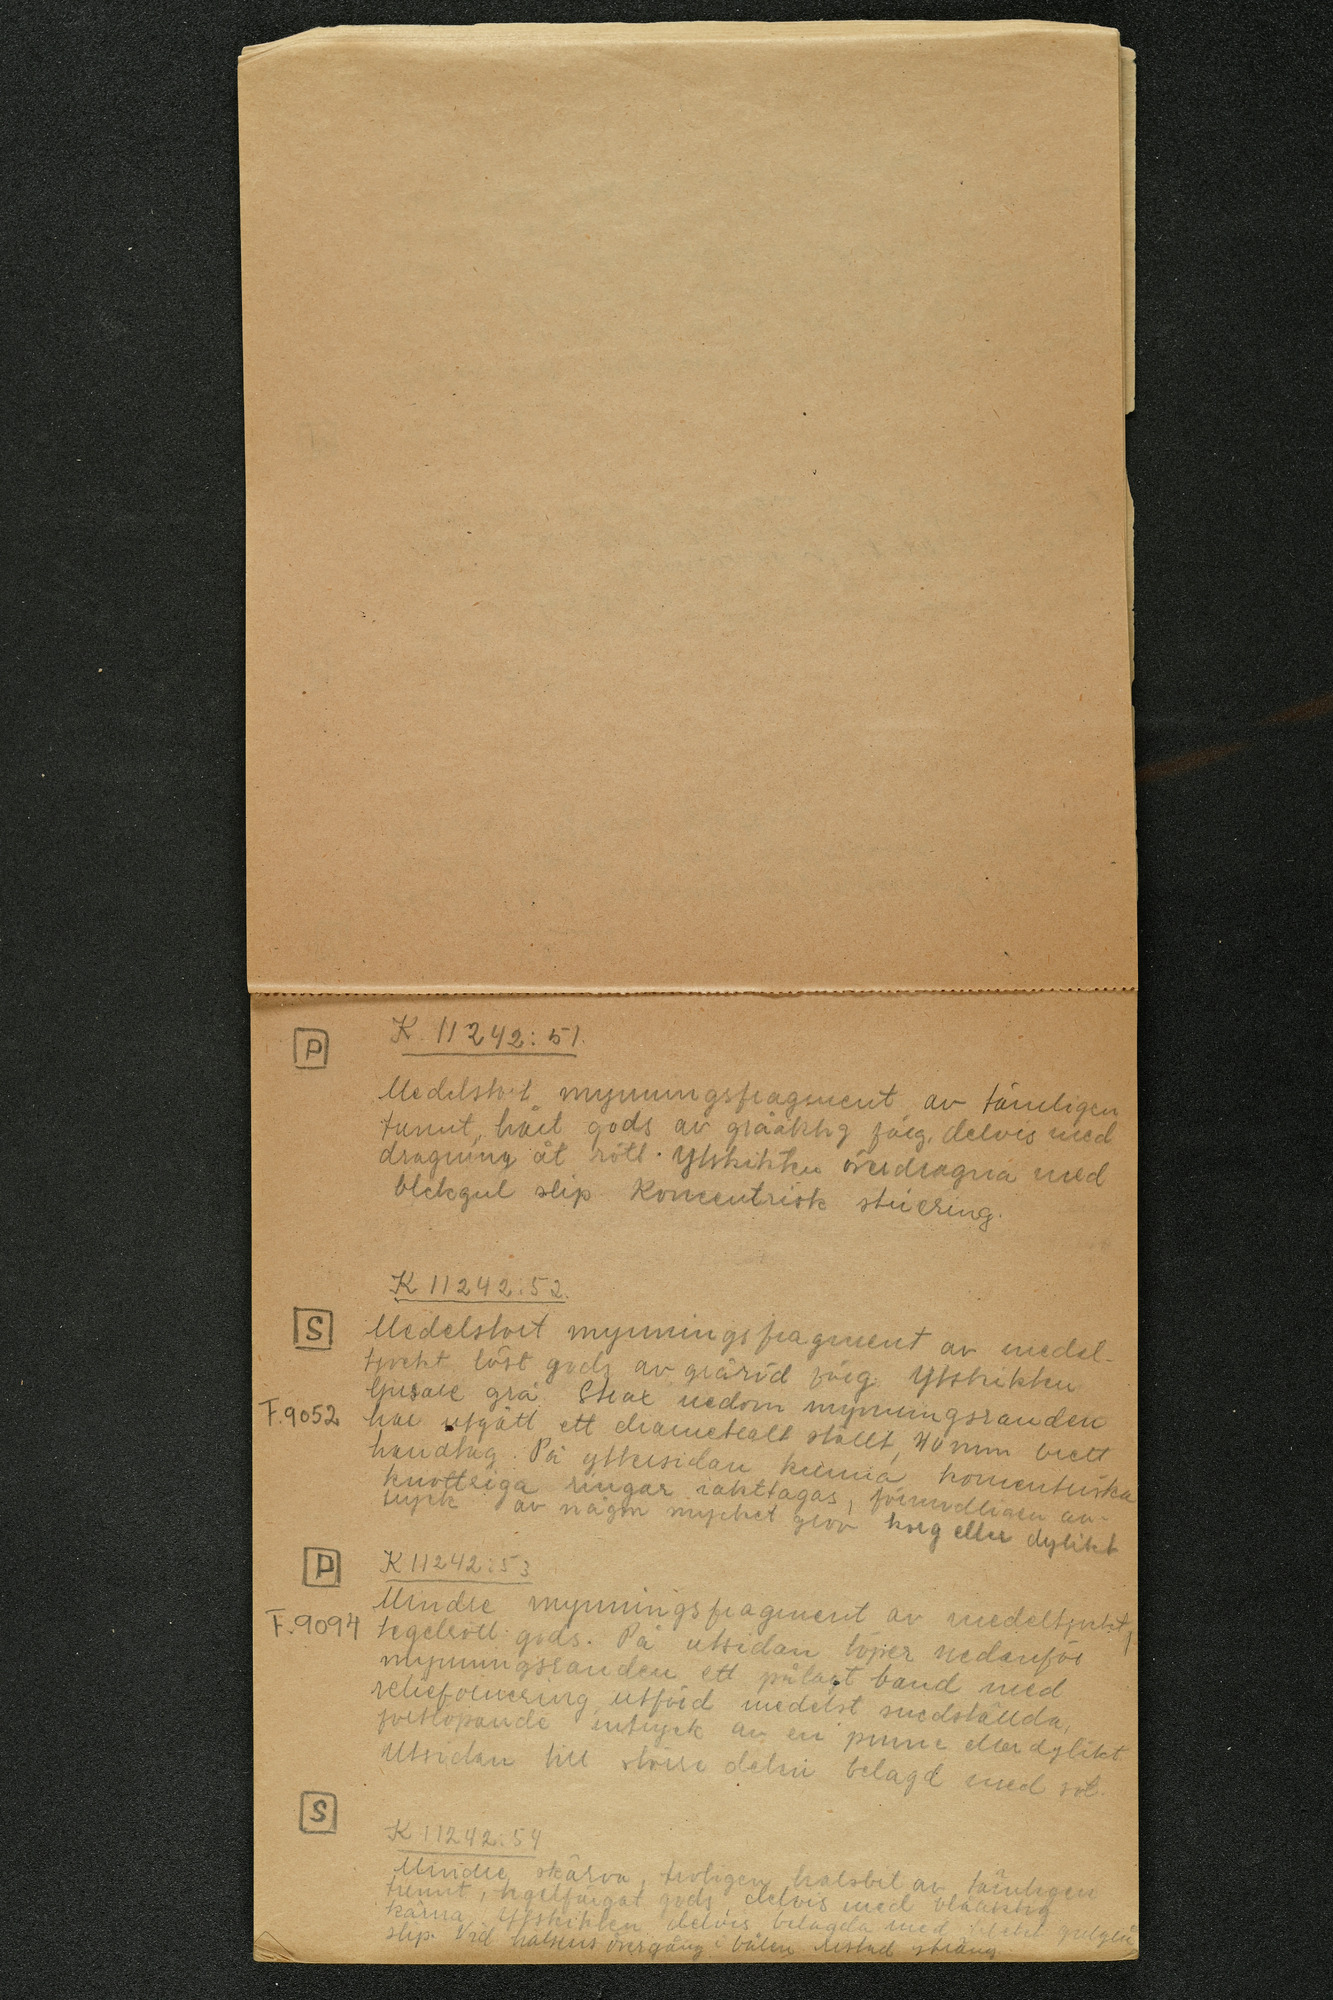 P
K 11242:51.
Medelstort mynningsfragment av tämligen
tunnt, hårt gods av gråaktig färg, delvis med
dragning åt rött. Ytskikten överdragna med
blekgul slip. Koncentrisk striering.
K 11242:52.
S
Medelstort mynningsfragment av medel-
tjockt löst gods av gråröd färg. Ytskikten
ljusare grå. Strax nedom mynningsranden
F.9052
har utgått ett diametralt ställt, 40 mm brett
handtag. På yttersidan kunna koncentriska
knottriga ringar iakttagas, förmodligen av-
tryck av någon mycket grov korg eller dylikt
P
K 11242:53
Mindre mynningsfragment av medeltjockt,
F.9094
tegelrött gods. På utsidan löper nedanför
mynningsranden ett pålagt band med
reliefornering utförd medelst snedställda,
fortlöpande intryck av en pinne eller dylikt
Utsidan till större delen belagd med sot.
S
K 11242:54
Mindre skärva, troligen halsbit av tämligen
tunnt, tegelfärgat gods delvis med blåaktig
kärna. Ytskikten delvis belagda med gulgrå
slip. Vid halsens övergång i bålen